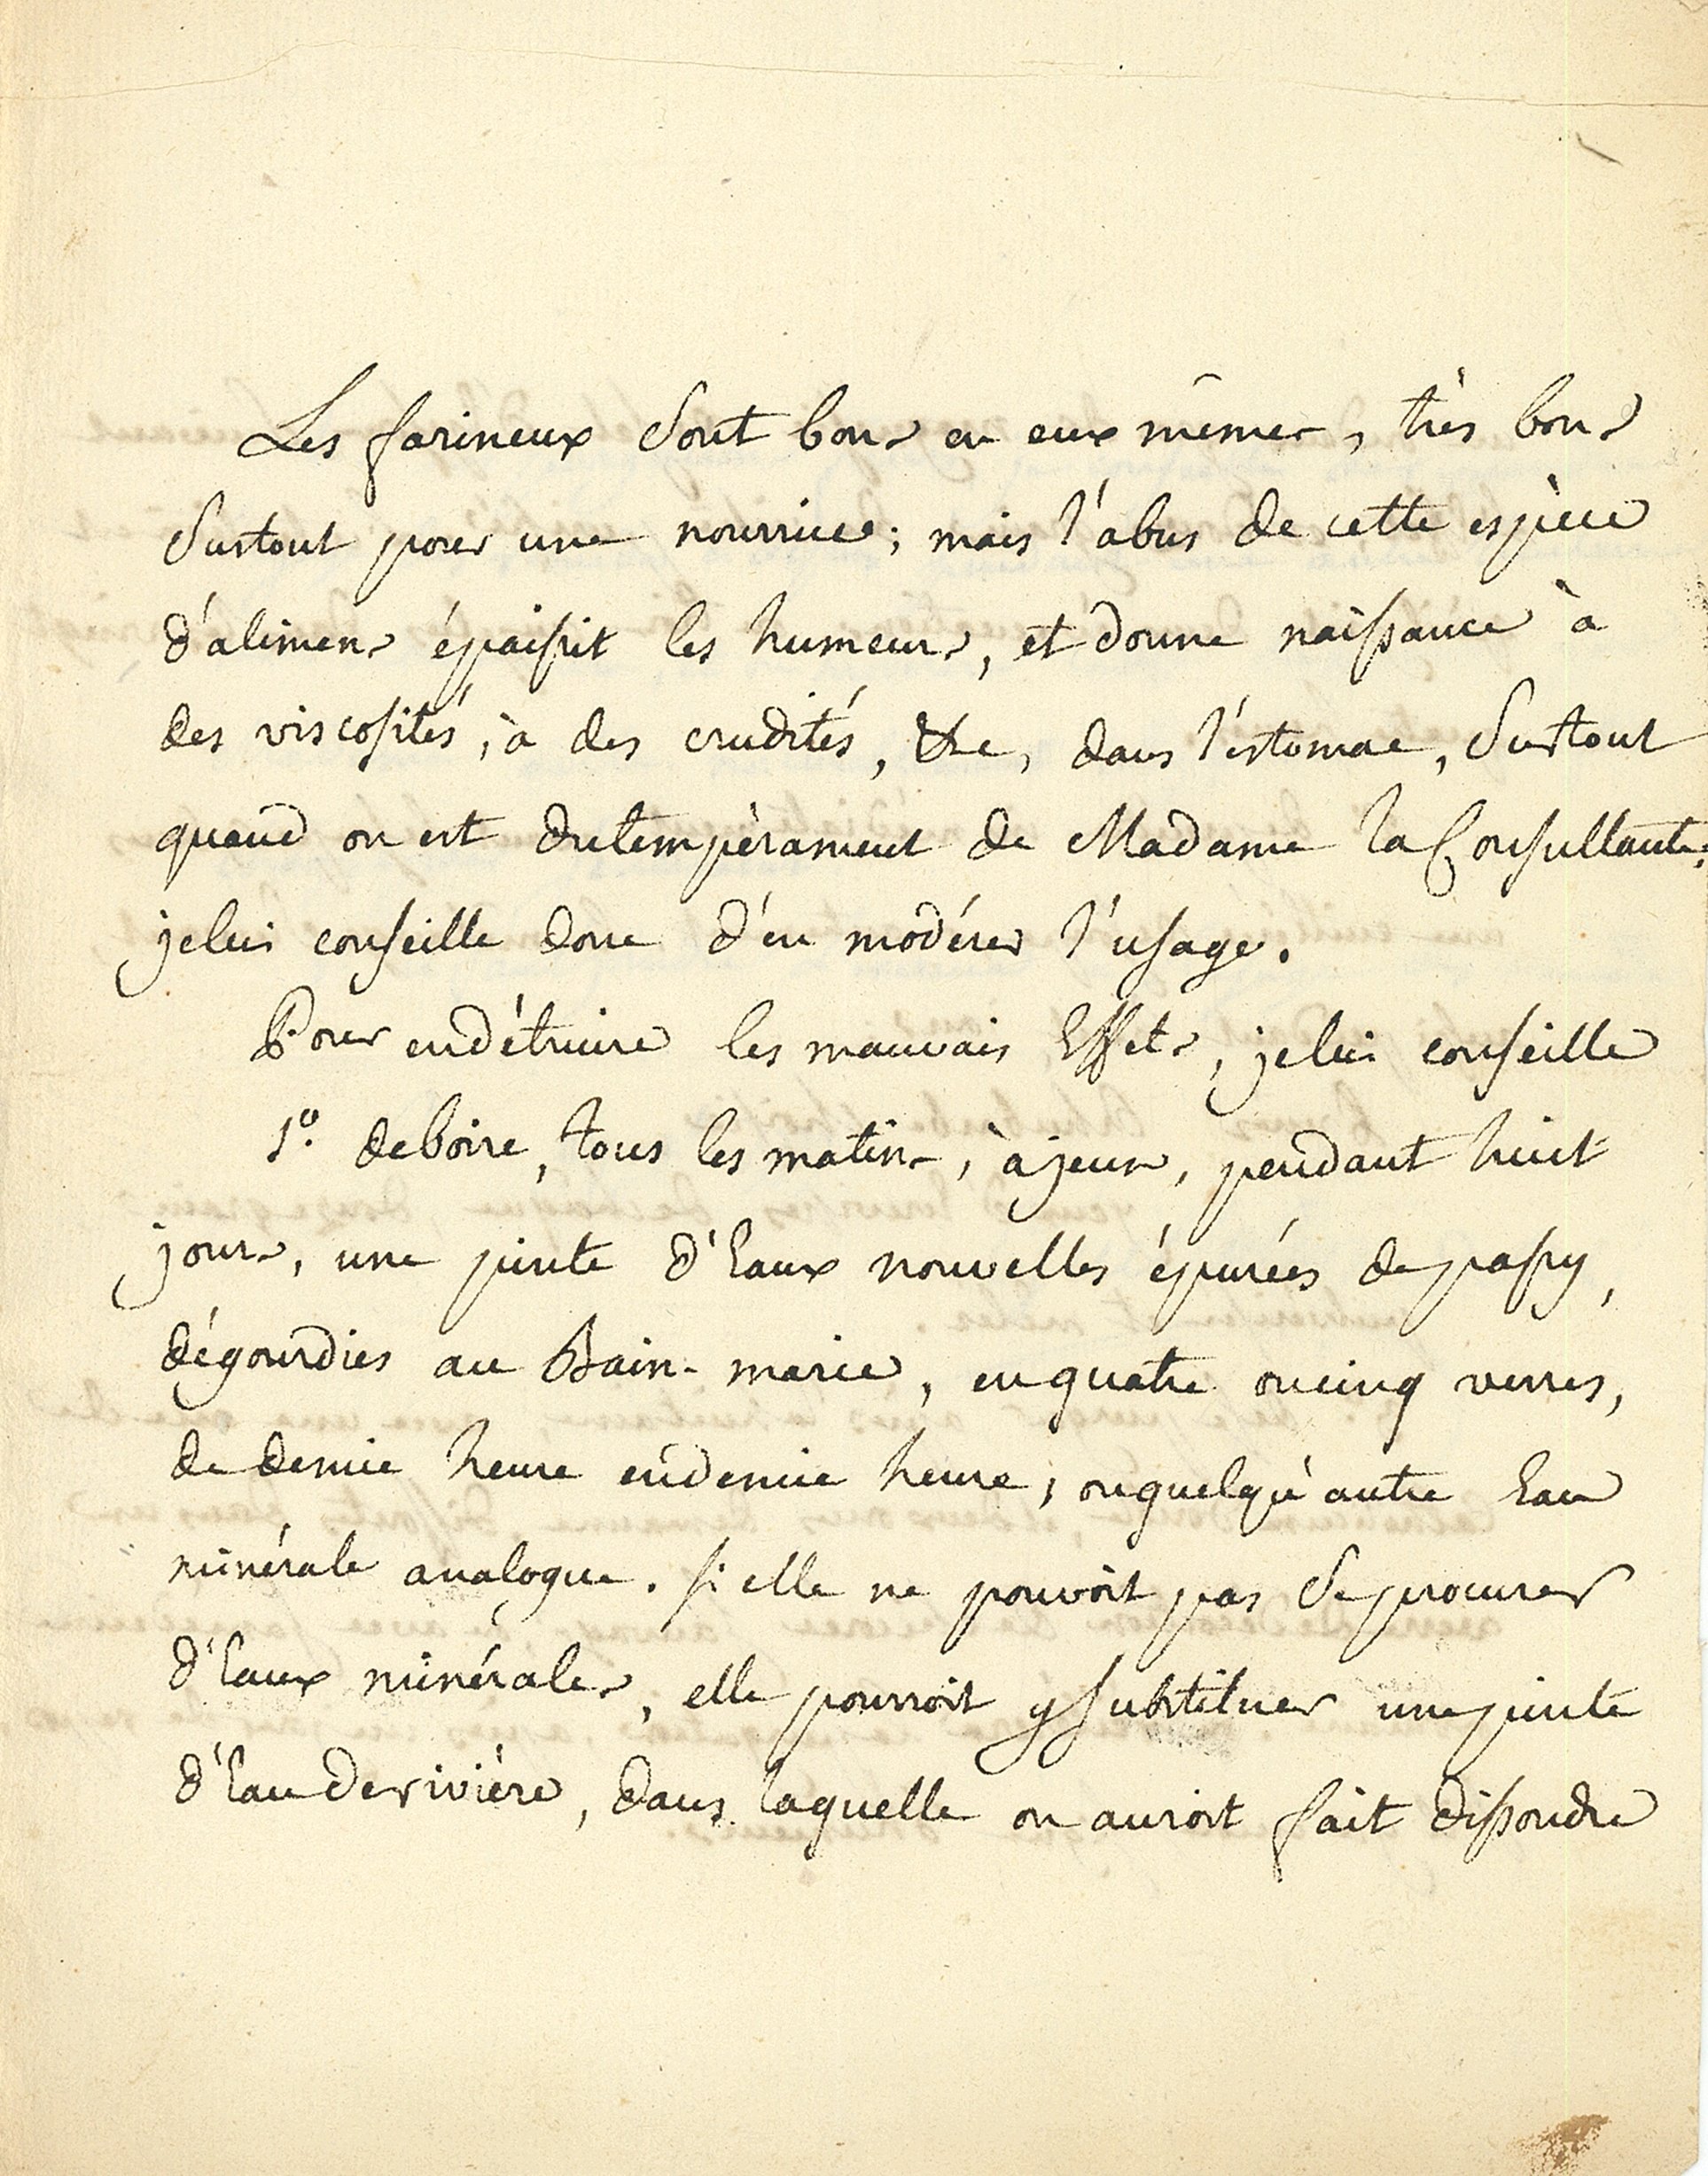 Les farineux sont bons en eux mêmes, très bons
surtout pour une nourrice; mais l'abus de cette espèce
d'alimens épaissit les humeurs, et donne naissance à
des viscosités, à des crudités, &c, dans l'éstomac, surtout
quand on est du tempèrament de Madame la Consultante.
je lui conseille donc d'én modérer l'usage.
Pour en détruire les mauvais Effets, je lui conseille
1º. de boire, tous les matins, à jeun, pendant huit
jours, une pinte d'Eaux nouvelles épurées de passy,
dégourdies au Bain-marie, en quatre ou cinq verres,
de demie heure en demie heure, ou quelqu'autre Eau
minérale analogue. si elle ne pouvoit pas se procurer
d'Eaux minérales, elle pourroit y substituer une pinte
d'Eau de rivière, dans laquelle on auroit fait dissoudre